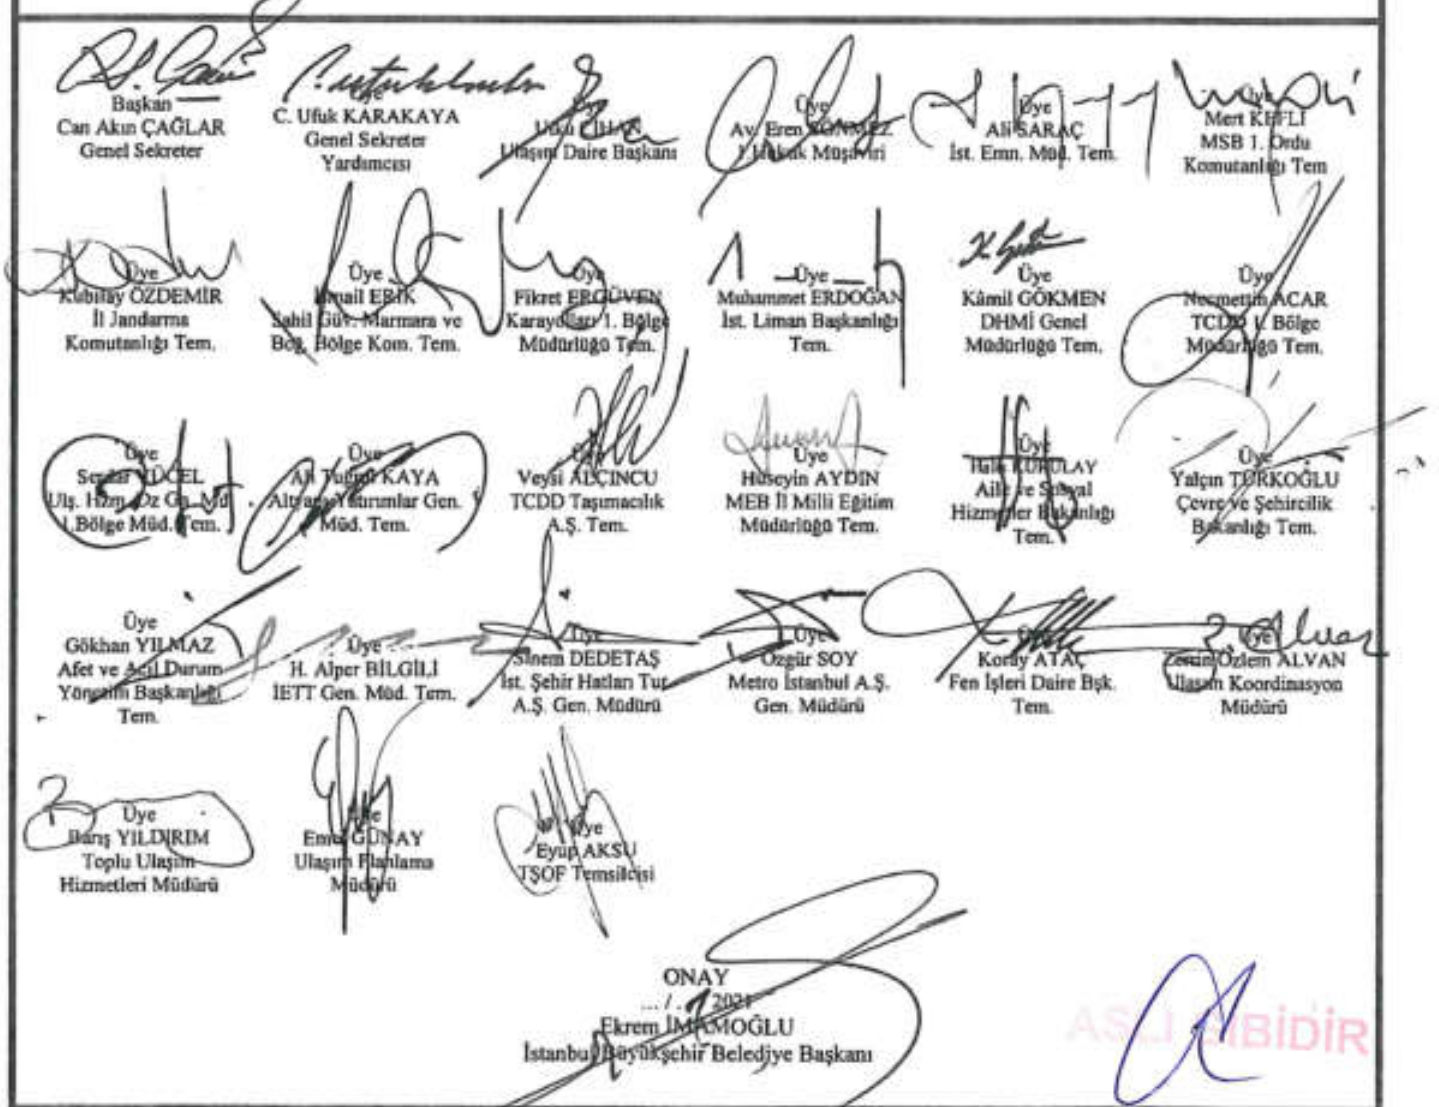 Başkan
Can Akın ÇAĞLAR
Genel Sekreter
Üye
C. Ufuk KARAKAYA
Genel Sekreter
Yardımcısı
Utku CİHAN
Ulaşım Daire Başkanı
Üye
Av. Eren SÖNMEZ
1. Hukuk Müşaviri
Üye
Ali SARAÇ
İst. Emn. Müd. Tem.
Üye
Mert KEFLİ
MSB 1. Ordu
Komutanlığı Tem
Üye
Kubilay ÖZDEMİR
İl Jandarma
Komutanlığı Tem.
Üye
İsmail ERİK
Sahil Güv. Marmara ve
Boğ. Bölge Kom. Tem.
Üye
Fikret ERGÜVEN
Karayolları 1. Bölge
Müdürlüğü Tem.
Üye
Muhammet ERDOĞAN
İst. Liman Başkanlığı
Tem.
Üye
Kâmil GÖKMEN
DHMİ Genel
Müdürlüğü Tem.
Üye
Necmettin ACAR
TCDD 1. Bölge
Müdürlüğü Tem.
Üye
Serdar YÜCEL
Ulş. Hizm. Dz Gn. Md.
1.Bölge Müd. Tem.
Üye
Ali Tuğrul KAYA
Altyapı Yatırımlar Gen.
Müd. Tem.
Üye
Veysi ALÇINCU
TCDD Taşımacılık
A.Ş. Tem.
Üye
Hüseyin AYDIN
MEB İl Milli Eğitim
Müdürlüğü Tem.
Üye
KURULAY
Aile ve Sosyal
Hizmetler Bakanlığı
Tem.
Üye
Yalçın TÜRKOĞLU
Çevre ve Şehircilik
Bakanlığı Tem.
Üye
Gökhan YILMAZ
Afet ve Acil Durum
Yönetim Başkanlığı
Tem.
Üye
H. Alper BİLGİLİ
İETT Gen. Müd. Tem.
Üye
Sinem DEDETAŞ
İst. Şehir Hatları Tur.
A.Ş. Gen. Müdürü
Üye
Özgür SOY
Metro İstanbul A.Ş.
Gen. Müdürü
Üye
Koray ATAÇ
Fen İşleri Daire Bşk.
Tem.
Üye
Özlem ALVAN
Ulaşım Koordinasyon
Müdürü
Üye
Barış YILDIRIM
Toplu Ulaşım
Hizmetleri Müdürü
Üye
GÜNAY
Ulaşım Planlama
Müdürü
Üye
Eyüp AKSU
TŞOF Temsilcisi
ONAY
2021
Ekrem İMAMOĞLU
İstanbul Büyükşehir Belediye Başkanı
ASLI GİBİDİR